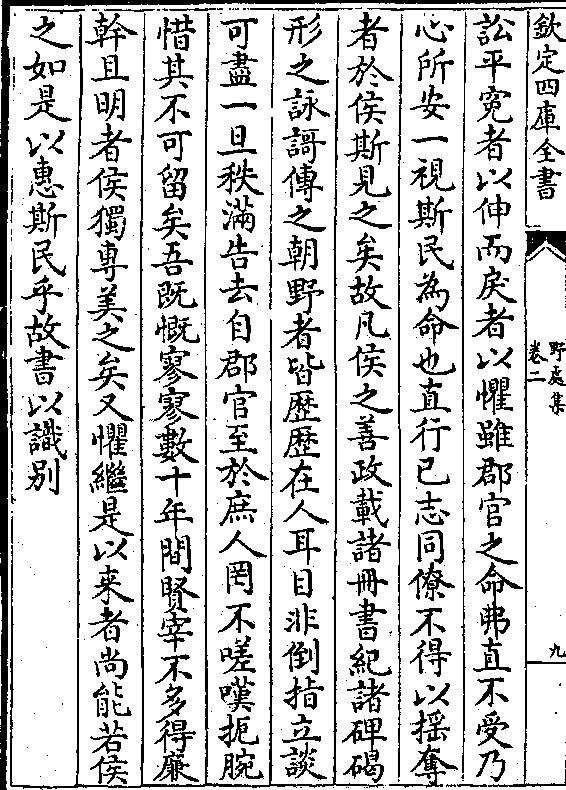 欽定四庫全書
野處集
卷二
九
訟平寃者以伸而戾者以懼雖郡官之命弗直不受乃
心所安一視斯民為命也直行已志同僚不得以揺奪
者於侯斯見之矣故凡侯之善政載諸冊書紀諸碑碣
形之詠謌傳之朝野者皆歴歴在人耳目非倒指立談
可盡一旦秩滿告去自郡官至於庶人罔不嗟嘆扼腕
惜其不可留矣吾既慨寥寥數十年間賢宰不多得廉
幹且明者侯獨專美之矣又懼繼是以来者尚能若侯
之如是以惠斯民乎故書以識别